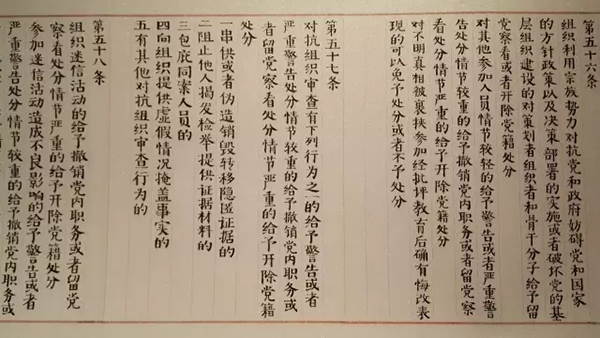 第五十六条
组织利用宗族势力对抗党和政府妨碍党和国家
的方针政策以及决策部署的实施或者破坏党的基
层组织建设的对策划者组织者和骨干分子给予留
党察看或者开除党籍处分
对其他参加人员情节较轻的给予警告或者严重警
告处分情节较重的给予撤销党内职务或者留党察
看处分情节严重的给予开除党籍处分
对不明真相被裹挟参加经批评教育后确有悔改表
现的可以免予处分或者不予处分
第五十七条
对抗组织审查有下列行为之一的给予警告或者
严重警告处分情节较重的给予撤销党内职务或
者留党察看处分情节严重的给予开除党籍
处分
一串供或者伪造销毁转移隐匿证据的
二阻止他人揭发检举提供证据材料的
三包庇同案人员的
四向组织提供虚假情况掩盖事实的
五有其他对抗组织审查行为的
第五十八条
组织迷信活动的给予撤销党内职务或者留党
察看处分情节严重的给予开除党籍处分
参加迷信活动造成不良影响的给予警告或者
严重警告处分情节较重的给予撤销党内职务或